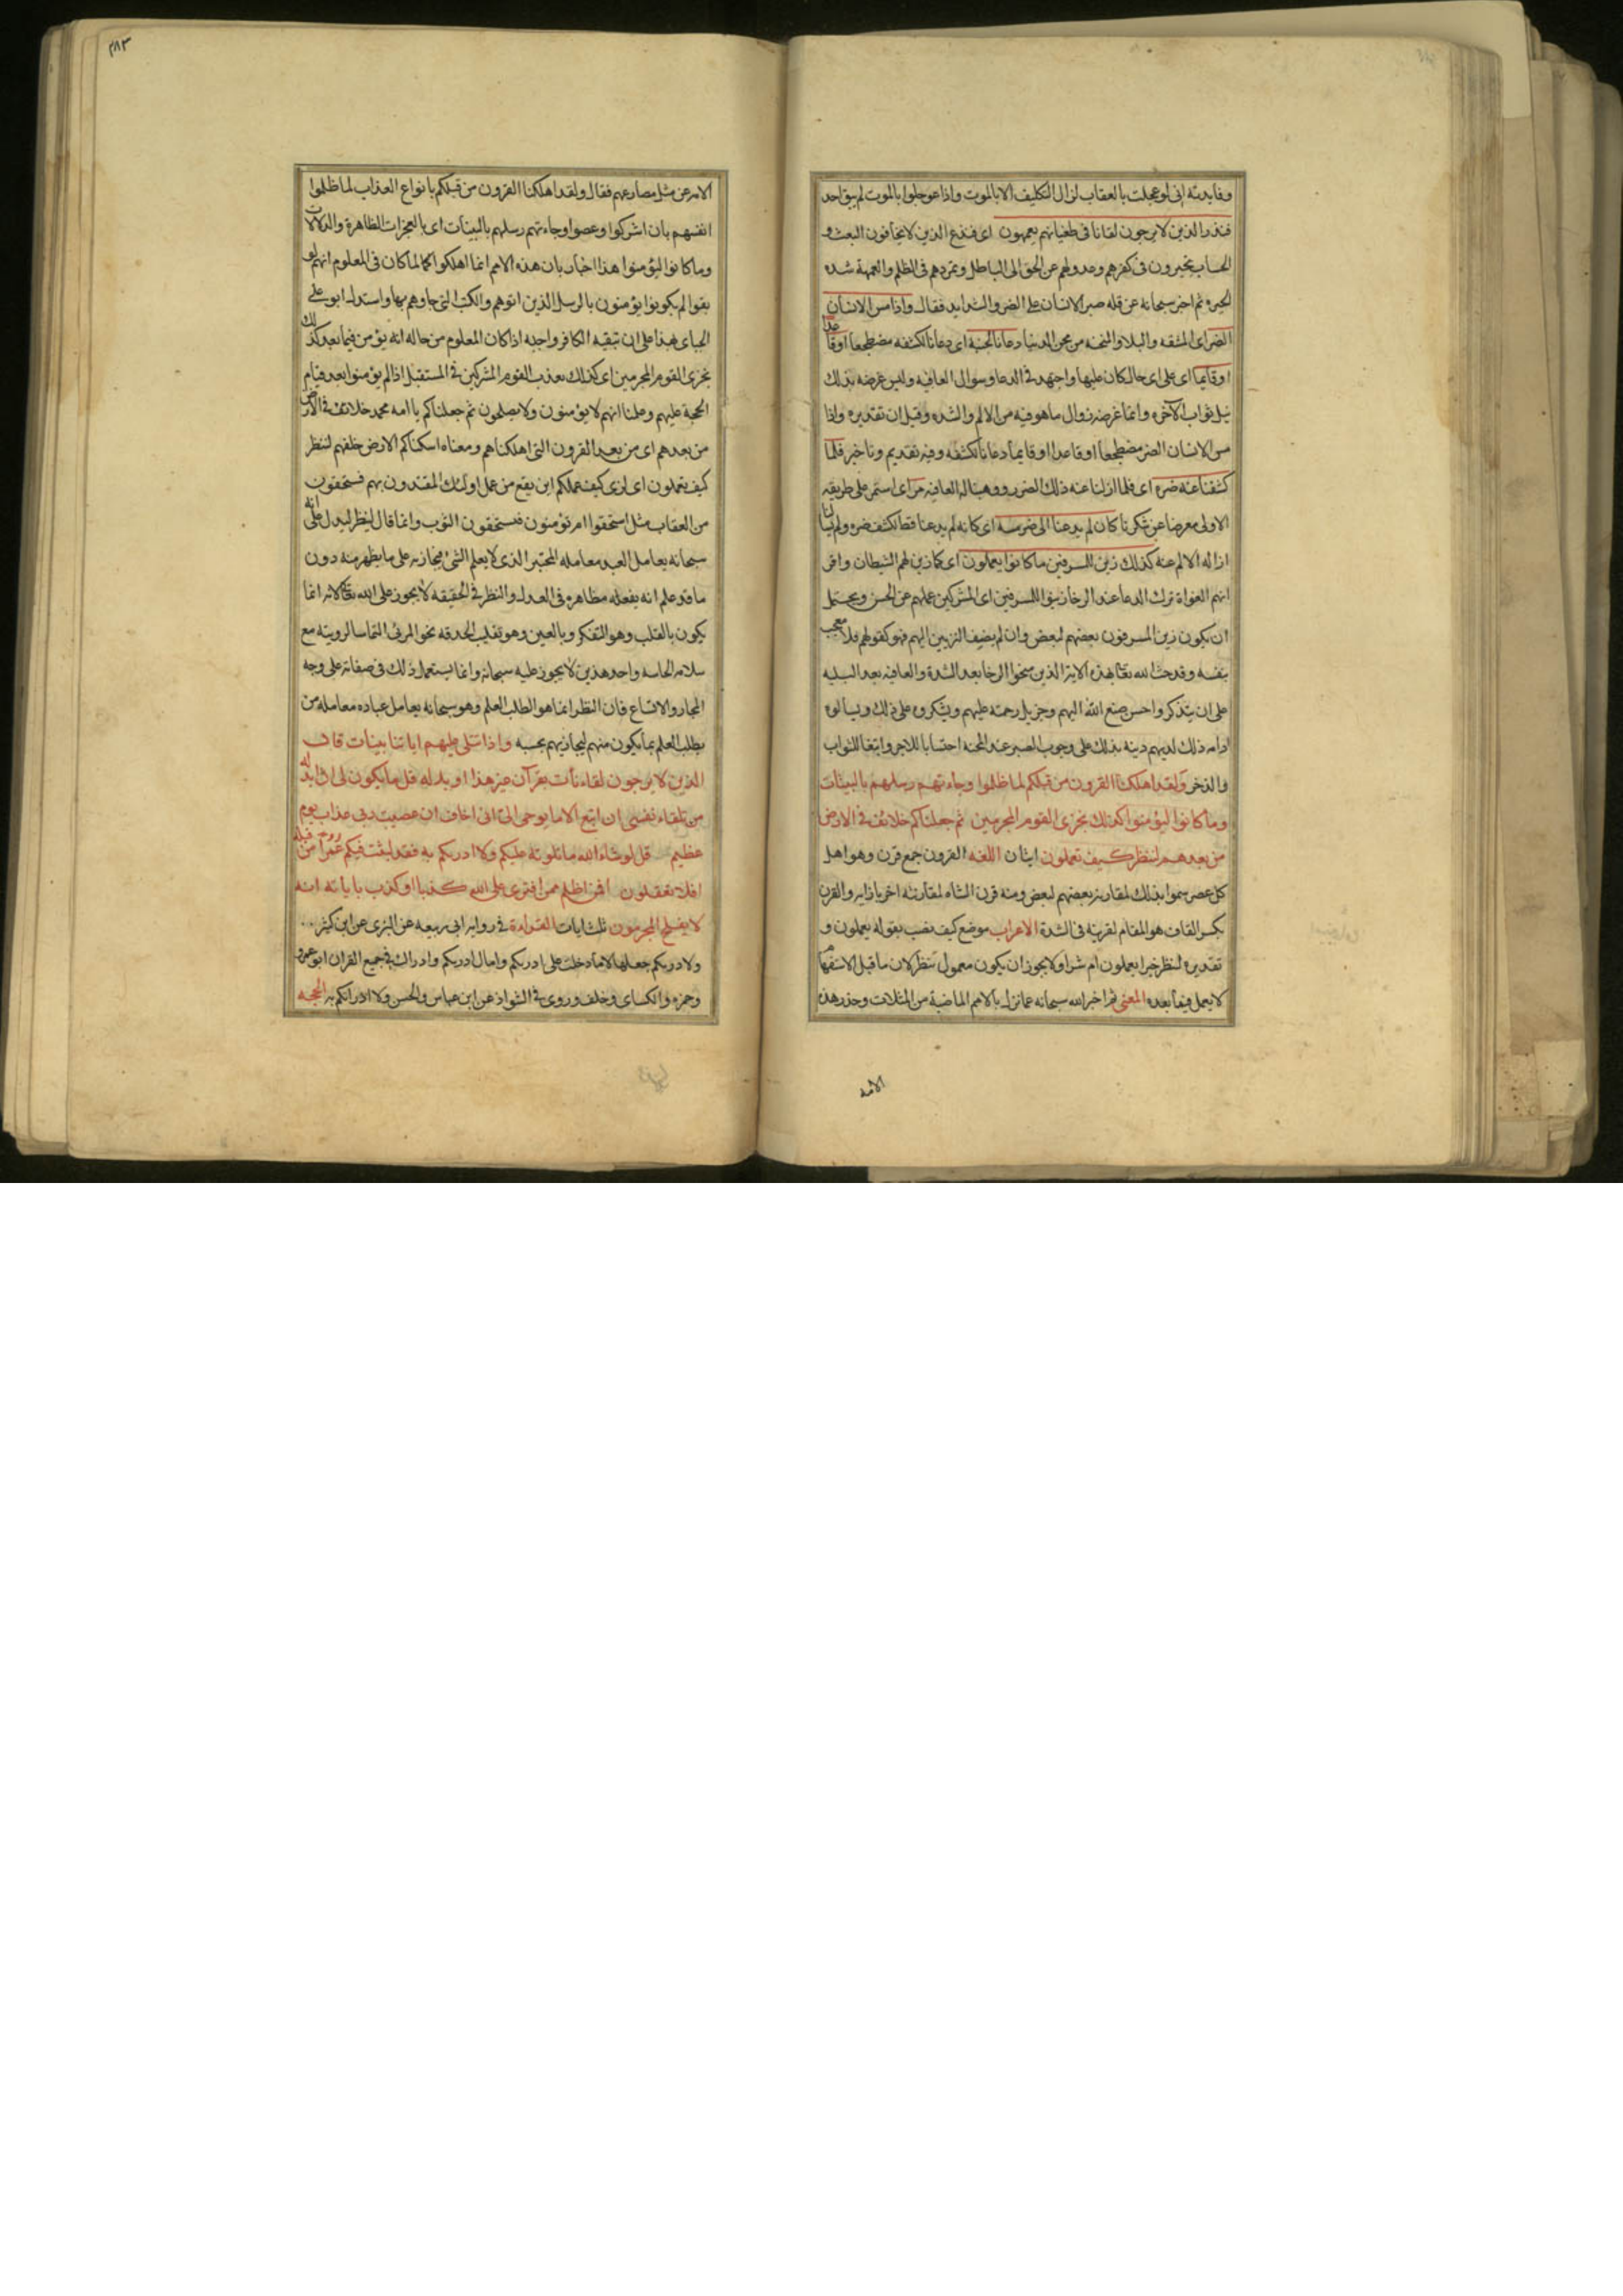 وفايدته انى لو عجلت بالعقاب لزال التكليف الا بالموت واذا عوجلوا بالموت لم يبق احد
فنذر الذين لا يرجون لقانا فى طغيانهم يعمهون اى فندع الذين لا يخافون البعث و
الحساب يتحيرون فى كفرهم وعدولهم عن الحق الى الباطل وتمردهم فى الظلم والعمهة شده
الحيره ثم اخبر سبحانه عن قله صبر الانسان على الضر والشدايد فقال واذا مس الانسان
الضر اى المشقه والبلاء والمحنه من محن الدنيا دعانا لجنبه اى دعانا لكشفه مضطجعا او قاعدا
او قايما اى على اى حال كان عليها واجتهد فى الدعا وسوال العافيه وليس غرضه بذلك
نيل ثواب الاخره وانما غرضه زوال ما هو فيه من الالم والشده وقيل ان تقديره واذا
مس الانسان الضر مضطجعا او قاعدا او قايما دعانا لكشفه وفيه تقديم وتاخير فلما
كشفنا عنه ضره اى فلما ازلنا عنه ذلك الضرر ووهبنا له العافيه مر اى استمر على طريقه
الاولى معرضا عن شكرنا كان لم يدعنا الى ضر مسه اى كانه لم يدعنا قط لكشف ضره ولم يسالنا
ازاله الالم عنه كذلك زين للمسرفين ما كانوا يعملون اى كما زين لهم الشيطان واقر
انهم الغواة ترك الدعا عند الرخا زينوا للمسرفين اى المشركين عملهم عن الحسن ويحتمل
ان يكون زين المسرفون بعضهم لبعض وان لم يضف التزيين اليهم فهو كقولهم فلان معجب
بنفسه وقد حث الله تعا بهذه الاية الذين منحوا الرخا بعد الشدة والعافيه بعد البليه
على ان يتذكروا حسن صنع الله اليهم وجزيل رحمته عليهم ويشكروه على ذلك ويسالوه
ادامه ذلك لديهم وينبه بذلك على وجوب الصبر عند المحنه احتسابا للاجر وابتغا للثواب
والذخر ولقد اهلكنا القرون من قبلكم لما ظلموا وجاءتهم رسلهم بالبينات
وما كانوا ليؤمنوا كذلك نجزى القوم المجرمين ثم جعلناكم خلائف فى الارض
من بعدهم لننظر كيف تعملون ايتان اللغه القرون جمع قرن وهو اهل
كل عصر سموا بذلك لمقارنة بعضهم لبعض ومنه قرن الشاه لمقارنته اخر بازايه والقرن
بكسر القاف هو المقام لقرينه فى الشدة الاعراب موضع كيف نصب بقوله يعملون و
تقديره لننظر خيرا يعملون ام شرا ولا يجوز ان يكون معمول ننظر لان ما قبل الاستفهام
لا يعمل فيما بعده المعنى ثم اخبر الله سبحانه عما نزل بالامم الماضية من المثلات وحذر هذه
الامه
٣٨٣
الامه عن مثل مصارعهم فقال ولقد اهلكنا القرون من قبلكم بانواع العذاب لما ظلموا
انفسهم بان اشركوا وعصوا وجاءتهم رسلهم بالبينات اى بالمعجزات الظاهرة والدلالات
وما كانوا ليؤمنوا هذا اخبار بان هذه الامم انما اهلكوا لما كان فى المعلوم انهم لو
بقوا لم يكونوا يؤمنون بالرسل الذين اتوهم والكتب التى جاوهم بها واستدل ابو على
الجباى بهذا على ان تبقيه الكافر واجبه اذا كان المعلوم من حاله انه يؤمن فيما بعد كذلك
نجزى القوم المجرمين اى كذلك نعذب القوم المشركين فى المستقبل اذا لم يؤمنوا بعد قيام
الحجة عليهم وعلمنا انهم لا يؤمنون ولا يصلحون ثم جعلناكم يا امه محمد خلائف فى الارض
من بعدهم اى من بعد القرون التى اهلكناهم ومعناه اسكناكم الارض خلفهم لننظر
كيف تعملون اى لنرى كيف عملكم اين يقع من عمل اولئك المقتدون بهم فتستحقون
من العقاب مثل استحقوا ام تؤمنون فتستحقون الثوب وانما قال لينظر ليدل على انه
سبحانه يعامل العبد معامله المختبر الذى لا يعلم الشئ فيجازيه على ما يظهر منه دون
ما قد علم انه يفعله مظاهره فى العدل والنظر فى الحقيقه لا يجوز على الله تعالى لانه انما
يكون بالقلب وهو التفكر وبالعين وهو تقليب الحدقه نحو المرئى التماسا لرويته مع
سلامه الحاسه واحد هذين لا يجوز عليه سبحانه وانما يستعمل ذلك فى صفاته على وجه
المجاز والاتساع فان النظر انما هو الطلب العلم وهو سبحانه يعامل عباده معامله من
يطلب العلم بما يكون منهم ليجازيهم بحسبه واذا تتلى عليهم اياتنا بينات قال
الذين لا يرجون لقاءنا ئت بقرآن غير هذا او بدله قل ما يكون لى ان ابدله
من تلقاء نفسى ان اتبع الا ما يوحى الى انى اخاف ان عصيت ربى عذاب يوم
عظيم قل لو شاء الله ما تلوته عليكم ولا ادريكم به فقد لبثت فيكم عمرا من قبله
افلا تعقلون افمن اظلم ممن افترى على الله كذبا او كذب باياته انه
لا يفلح المجرمون ثلث ايات القراءة فى روايه ابى ربيعه عن البزى عن ابن كثير
ولادريكم جعلها لاما دخلت على ادريكم وامال ادريكم وادراك فى جميع القران ابو عمرو
وحمزه والكساى وخلف وروى فى الشواذ عن ابن عباس والحسن ولا ادراتكم به الحجه